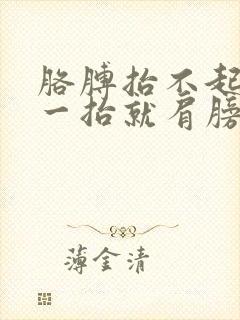 胳膊抬不起
一抬就肩膀
薄金清